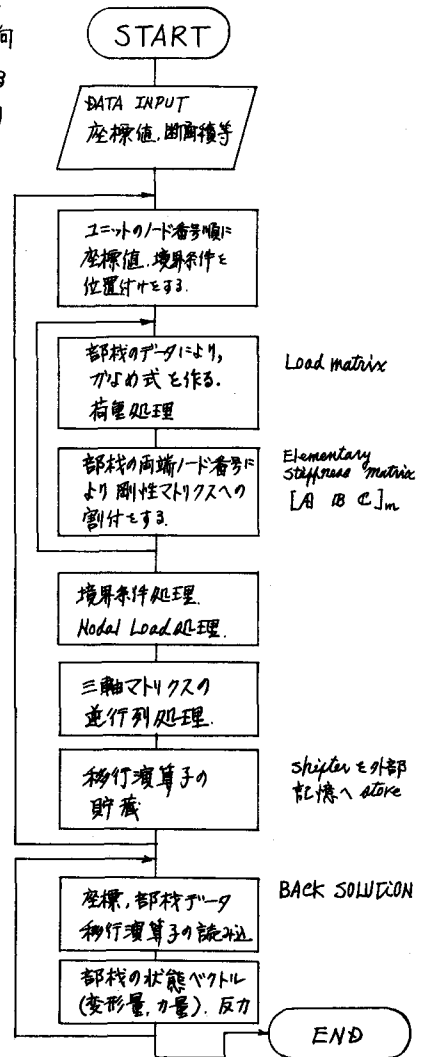 向
START
DATA INPUT
座標値, 断面積等
ユニットのノード番号順に
座標値, 境界条件を
位置付けをする.
部材のデータにより,
かなめ式を作る.
荷重処理
Load matrix
部材の両端ノード番号に
より剛性マトリクスへの
割付をする.
Elementary
Stiffness matrix
[A B C]m
境界条件処理.
Nodal Load処理.
三軸マトリクスの
逆行列処理.
移行演算子の
貯蔵
Shifterを外部
記憶へ store
BACK SOLUTION
座標, 部材データ
移行演算子の読み込
部材の状態ベクトル
(変形量, 力量). 反力
END